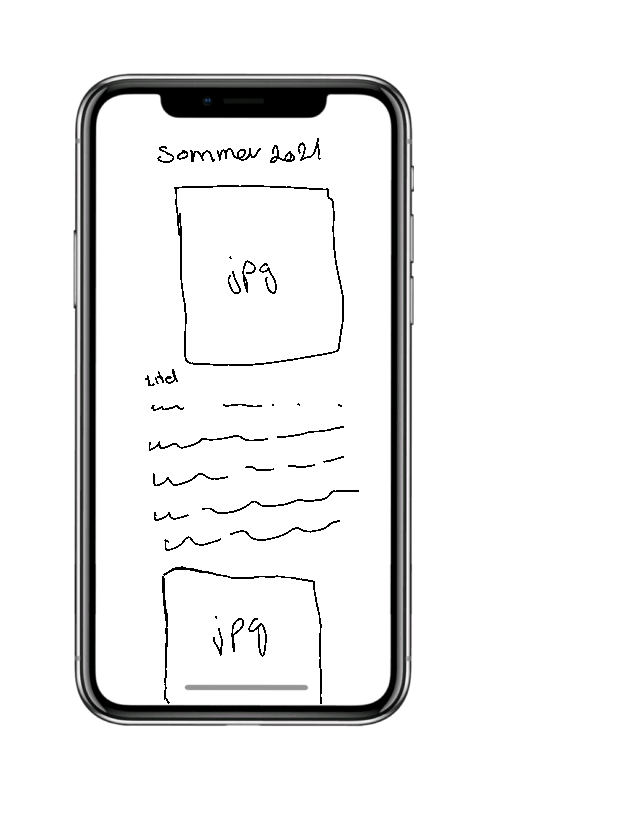 Sommer 2021
jpg
titel
jpg